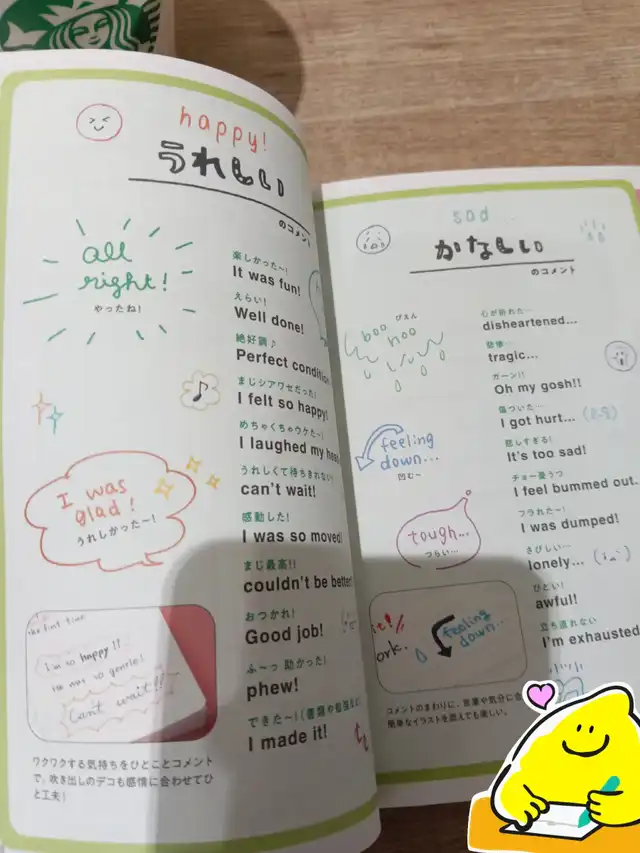 happy!
うれしい
のコメント
all
right!
やったね!
楽しかった〜!
It was fun!
えらい!
Well done!
絶好調♪
Perfect condition
まじシアワセだった!
I felt so happy!
めちゃくちゃウケた〜!
I laughed my
うれしくて待ちきれない!
can't wait!
感動した!
I was so moved!
まじ最高!!
couldn't be better!
おつかれ!
Good job!
ふ〜っ 助かった!
phew!
できた〜!
I made it!
I was
glad!
うれしかった〜!
the first time
I'm so happy!!
He was so gentle!
Can't wait!!
ワクワクする気持ちをひとことコメント
で。吹き出しのデコも感情に合わせてひ
と工夫!
sad...
かなしい
のコメント
ぴえん
boo
hoo
feeling
down...
凹む〜
tough...
つらい...
心が折れた…
disheartened...
悲惨…
tragic...
ガーン!!
Oh my gosh!!
傷ついた…
I got hurt...
悲しすぎる!
It's too sad!
チョー憂うつ
I feel bummed out.
フラれた〜!
I was dumped!
さびしい…
lonely...
ひどい!
awful!
立ち直れない
I'm exhausted
it!!
ork.
feeling
down...
コメントのまわりに、言葉や気分に合
簡単なイラストを添えても楽しい。